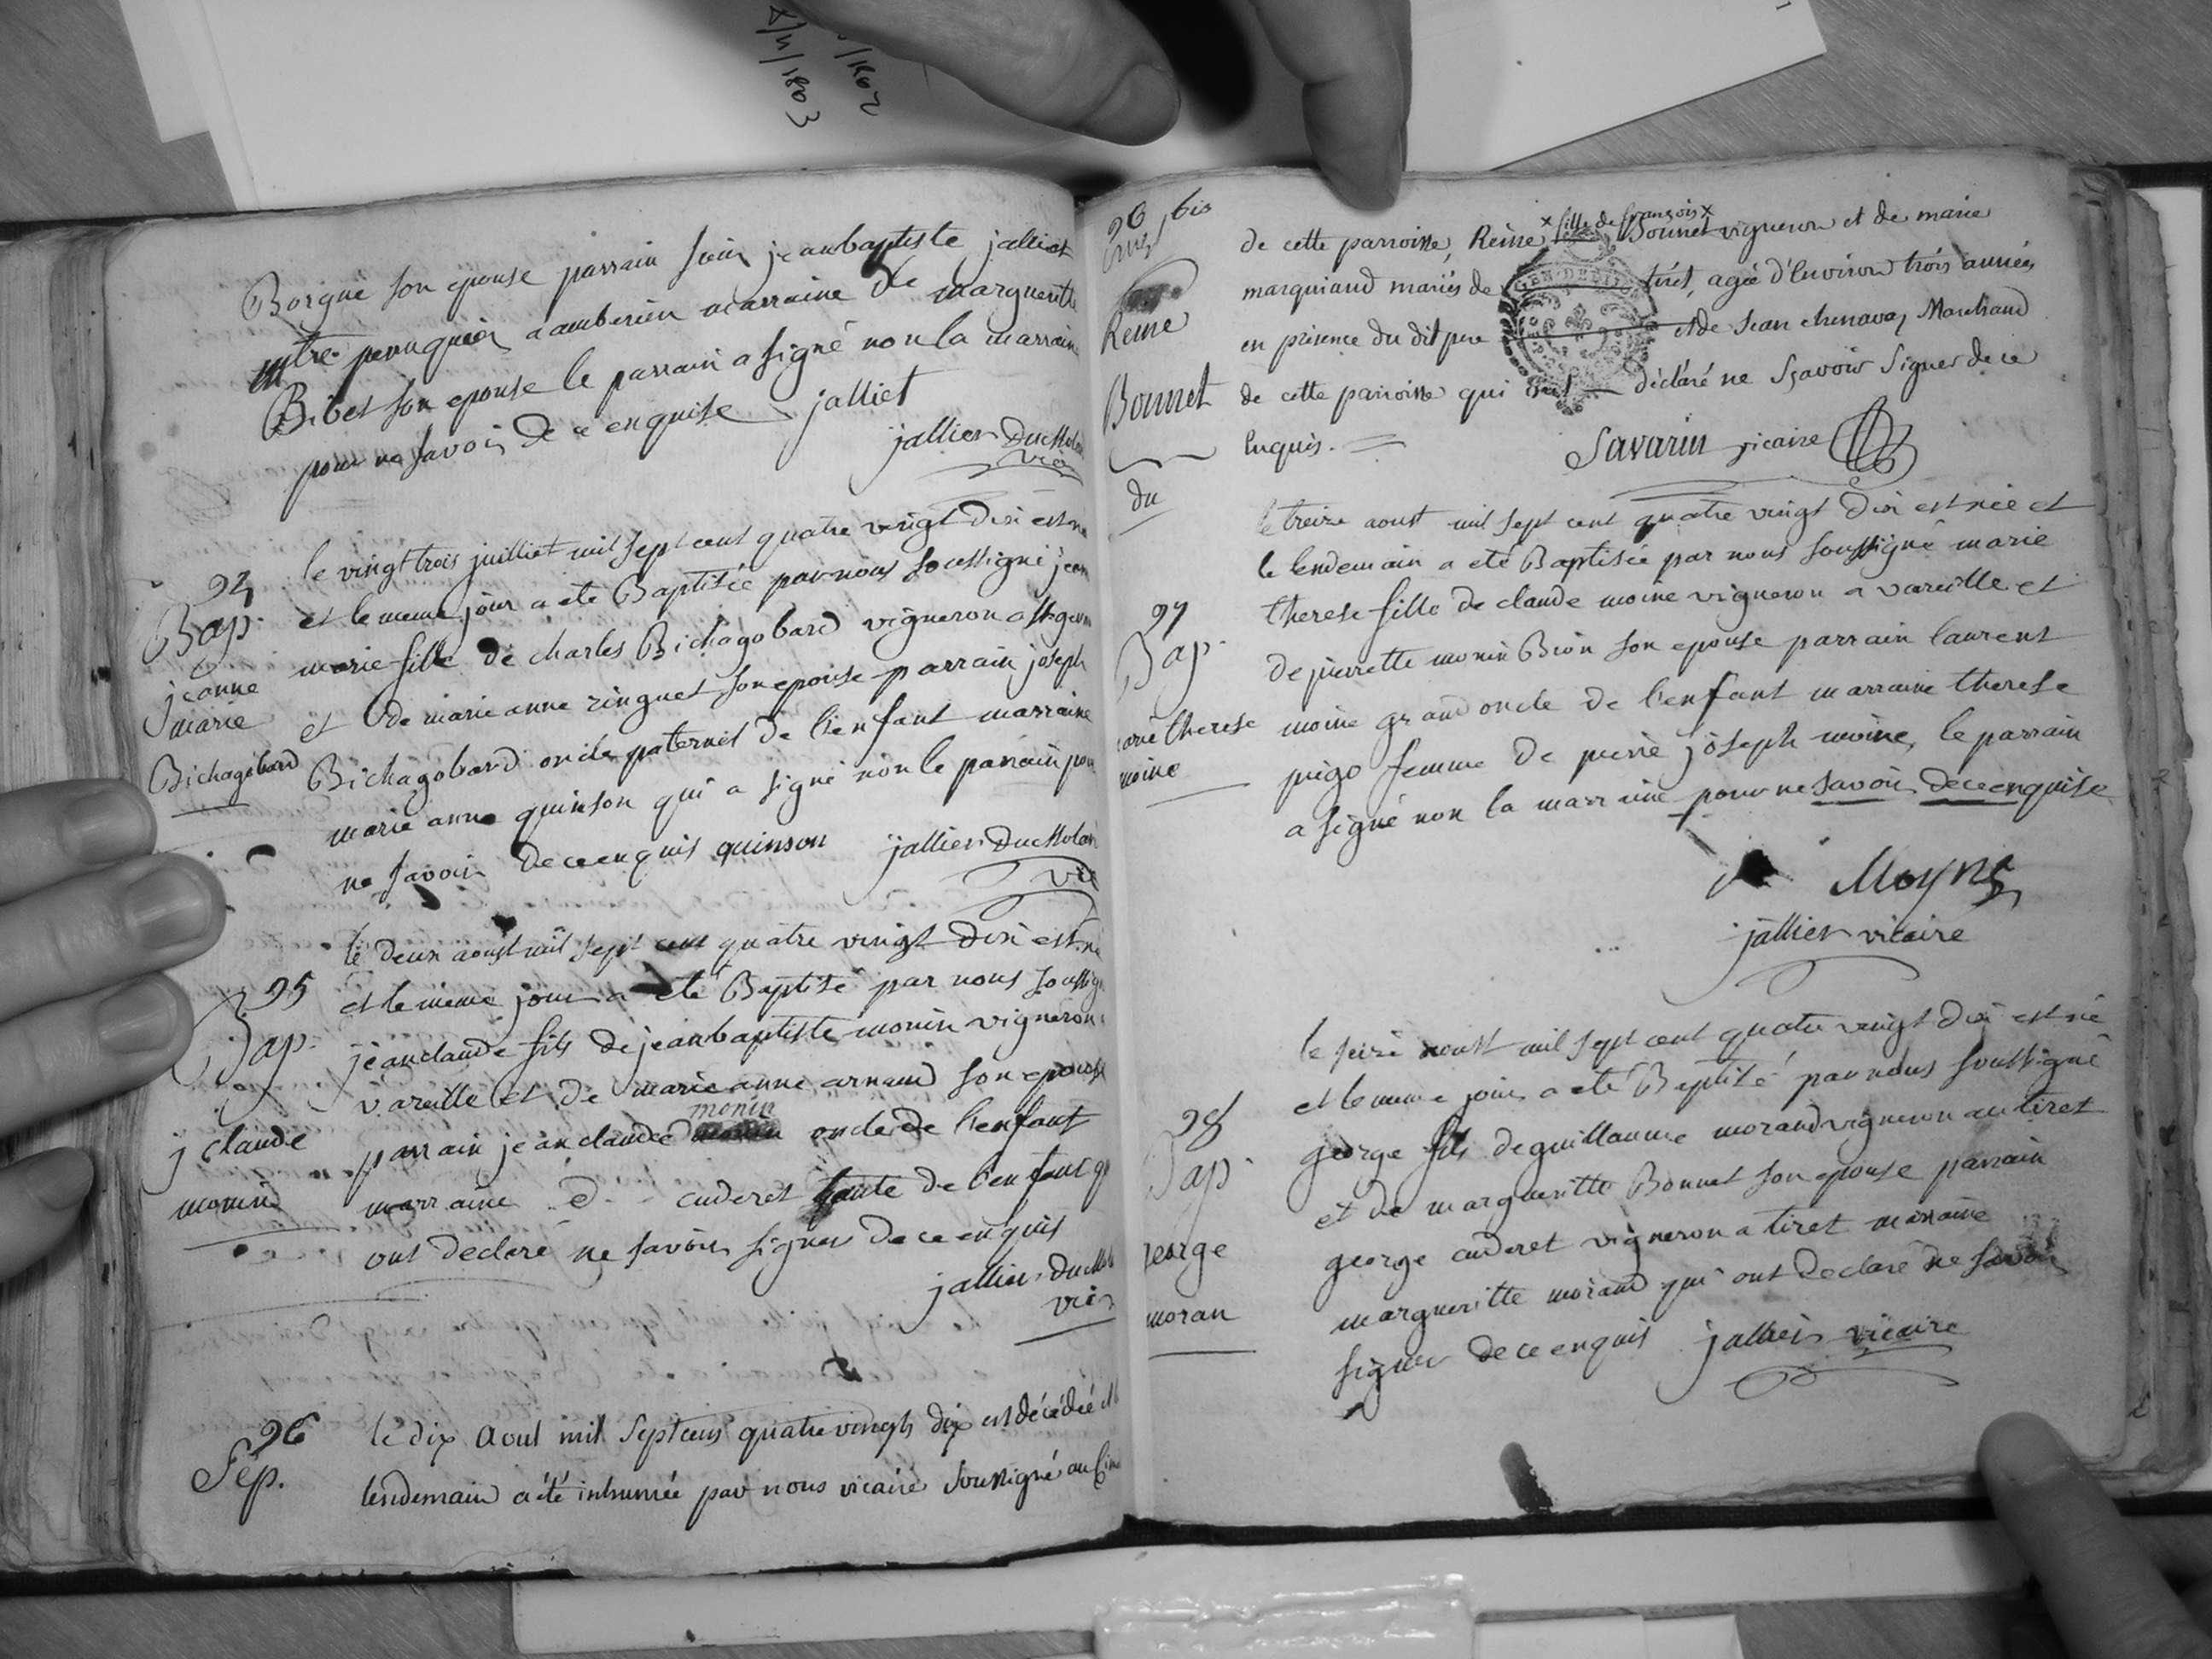 1802
1803
Borgne son epouse parrain sieur jean baptiste jalliet
mtre peruquier a amberieu marraine de margueritte
Bibet son epouse le parrain a signé non la marraine
pour ne savoir de ce enquise jalliet
jallier
vic
94
Bap.
jeanne
marie
Bichagobard
le vingt trois juilliet mil sept cent quatre vingt dix est né
et le meme jour a ete Baptisée par nous soussigné jeanne
marie fille de charles Bichagobard vigneron a
et de marie anne ringuet son epouse parrain joseph
Bichagobard oncle paternel de l'enfant marraine
marie anne quinson qui a signé non le parrain pour
ne savoir de ce enquis quinson jallier
vic
95
Bap.
j claude
monin
le deux aoust mil sept cent quatre vingt dix est né
et le meme jour a ete Baptisé par nous soussigné
jean claude fils de jean baptiste monin vigneron a
vareille et de marie anne arnaud son epouse
monin
parrain jean claude oncle de l'enfant
marraine cuderet tante de l'enfant qui
ont declaré ne savoir signer de ce enquis
jallier
vic
96
Sep.
le dix Aout mil sept cens quatre vingts dix est décédée et le
lendemain a été inhumée par nous vicaire soussigné au
96 bis
Reine
Bonnet
x fille de françois x
de cette parroisse, Reine Bonnet vigneron et de marie
marquiand mariés de tiret, agée d'environ trois années
en présence du dit pere et de Jean chenavaz Marchand
de cette parroisse qui ont déclaré ne sçavoir signer de ce
enquis.
Savarin vicaire
du
97
Bap.
marie therese
moine
le treize aoust mil sept cent quatre vingt dix est née et
le lendemain a eté Baptisée par nous soussigné marie
therese fille de claude moine vigneron a vareille et
de pierrette monin Bion son epouse parrain laurent
moine grand oncle de l'enfant marraine therese
prego femme de pierre joseph moine, le parrain
a signé non la marraine pour ne savoir de ce enquise
Moyne
jallier vicaire
98
Bap.
george
moran
le seize aoust mil sept cent quatre vingt dix est né
et le meme jour a eté Baptisé par nous soussigné
george fils de guillaume morand vigneron au tiret
et de margueritte Bonnet son epouse parrain
george cuderet vigneron a tiret marraine
margueritte morand qui ont declaré ne savoir
signer de ce enquis jallier vicaire